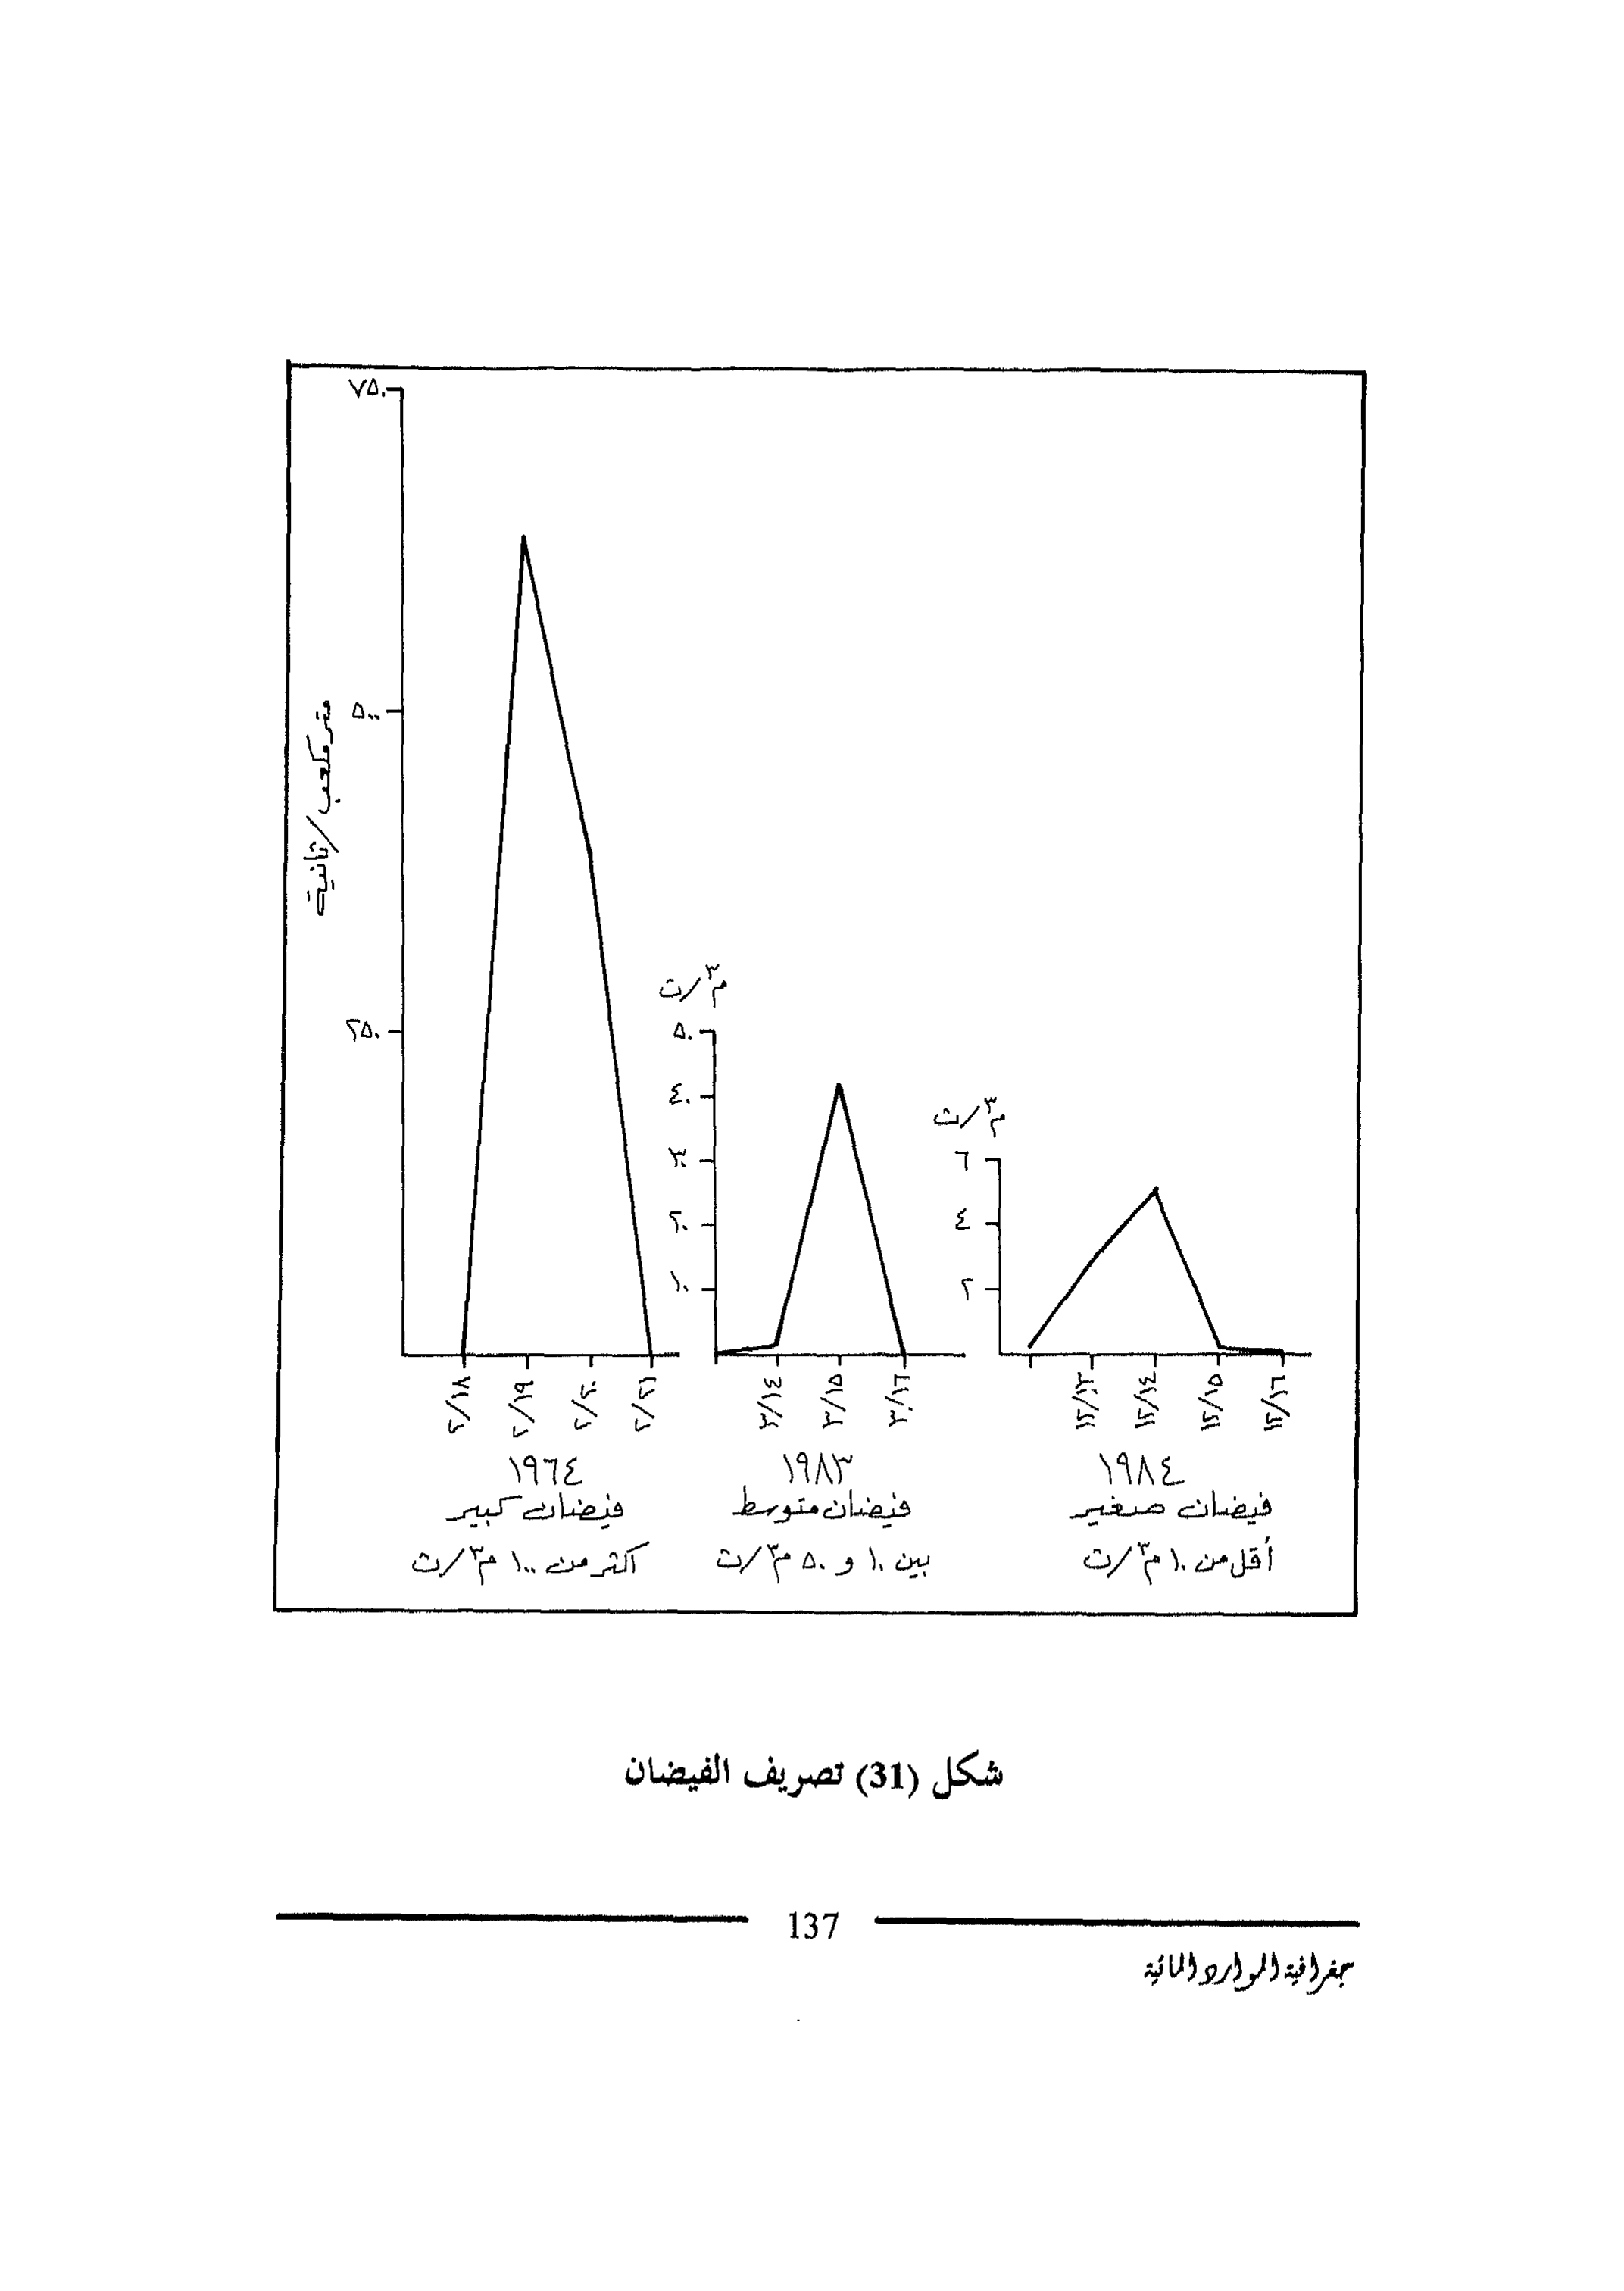 ٧٥٠
٥٠٠
٢٥٠
متر مكعب/ثانية
م٣/ث
٥٠
٤٠
٣٠
٢٠
١٠
م٣/ث
٦
٤
٢
٢/١٨
٢/١٩
٢/٢٠
٢/٢١
٣/١٤
٣/١٥
٣/١٦
١٢/١٣
١٢/١٤
١٢/١٥
١٢/١٦
١٩٦٤
فيضان كبير
اكثر من ١٠٠ م٣/ث
١٩٨٣
فيضان متوسط
بين ١٠ و ٥٠ م٣/ث
١٩٨٤
فيضان صغير
أقل من ١٠ م٣/ث
شكل (31) تصريف الفيضان
137
جغرافية الموارد المائية